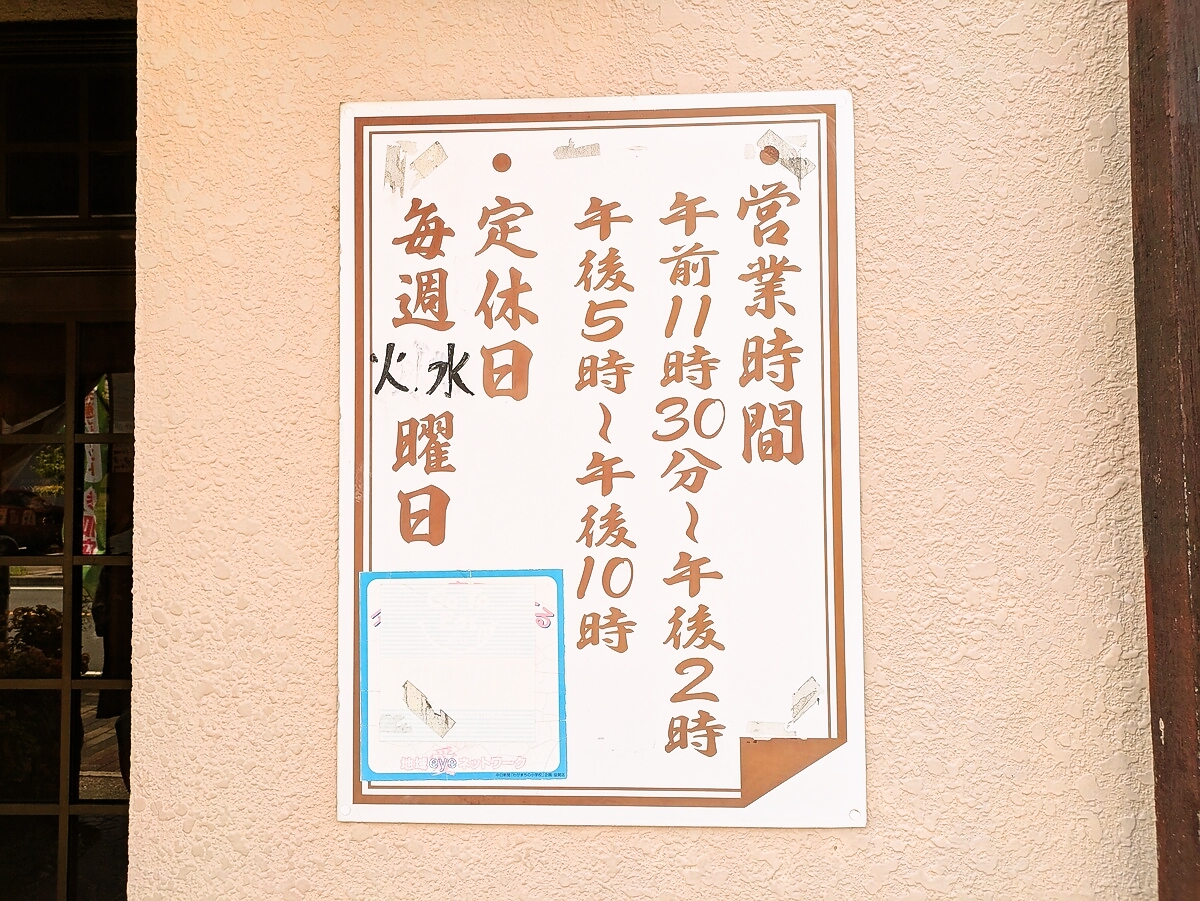 ●営業時間
午前11時30分~午後2時
午後5時~午後10時
●定休日
毎週火.水曜日
地域eyeネットワーク